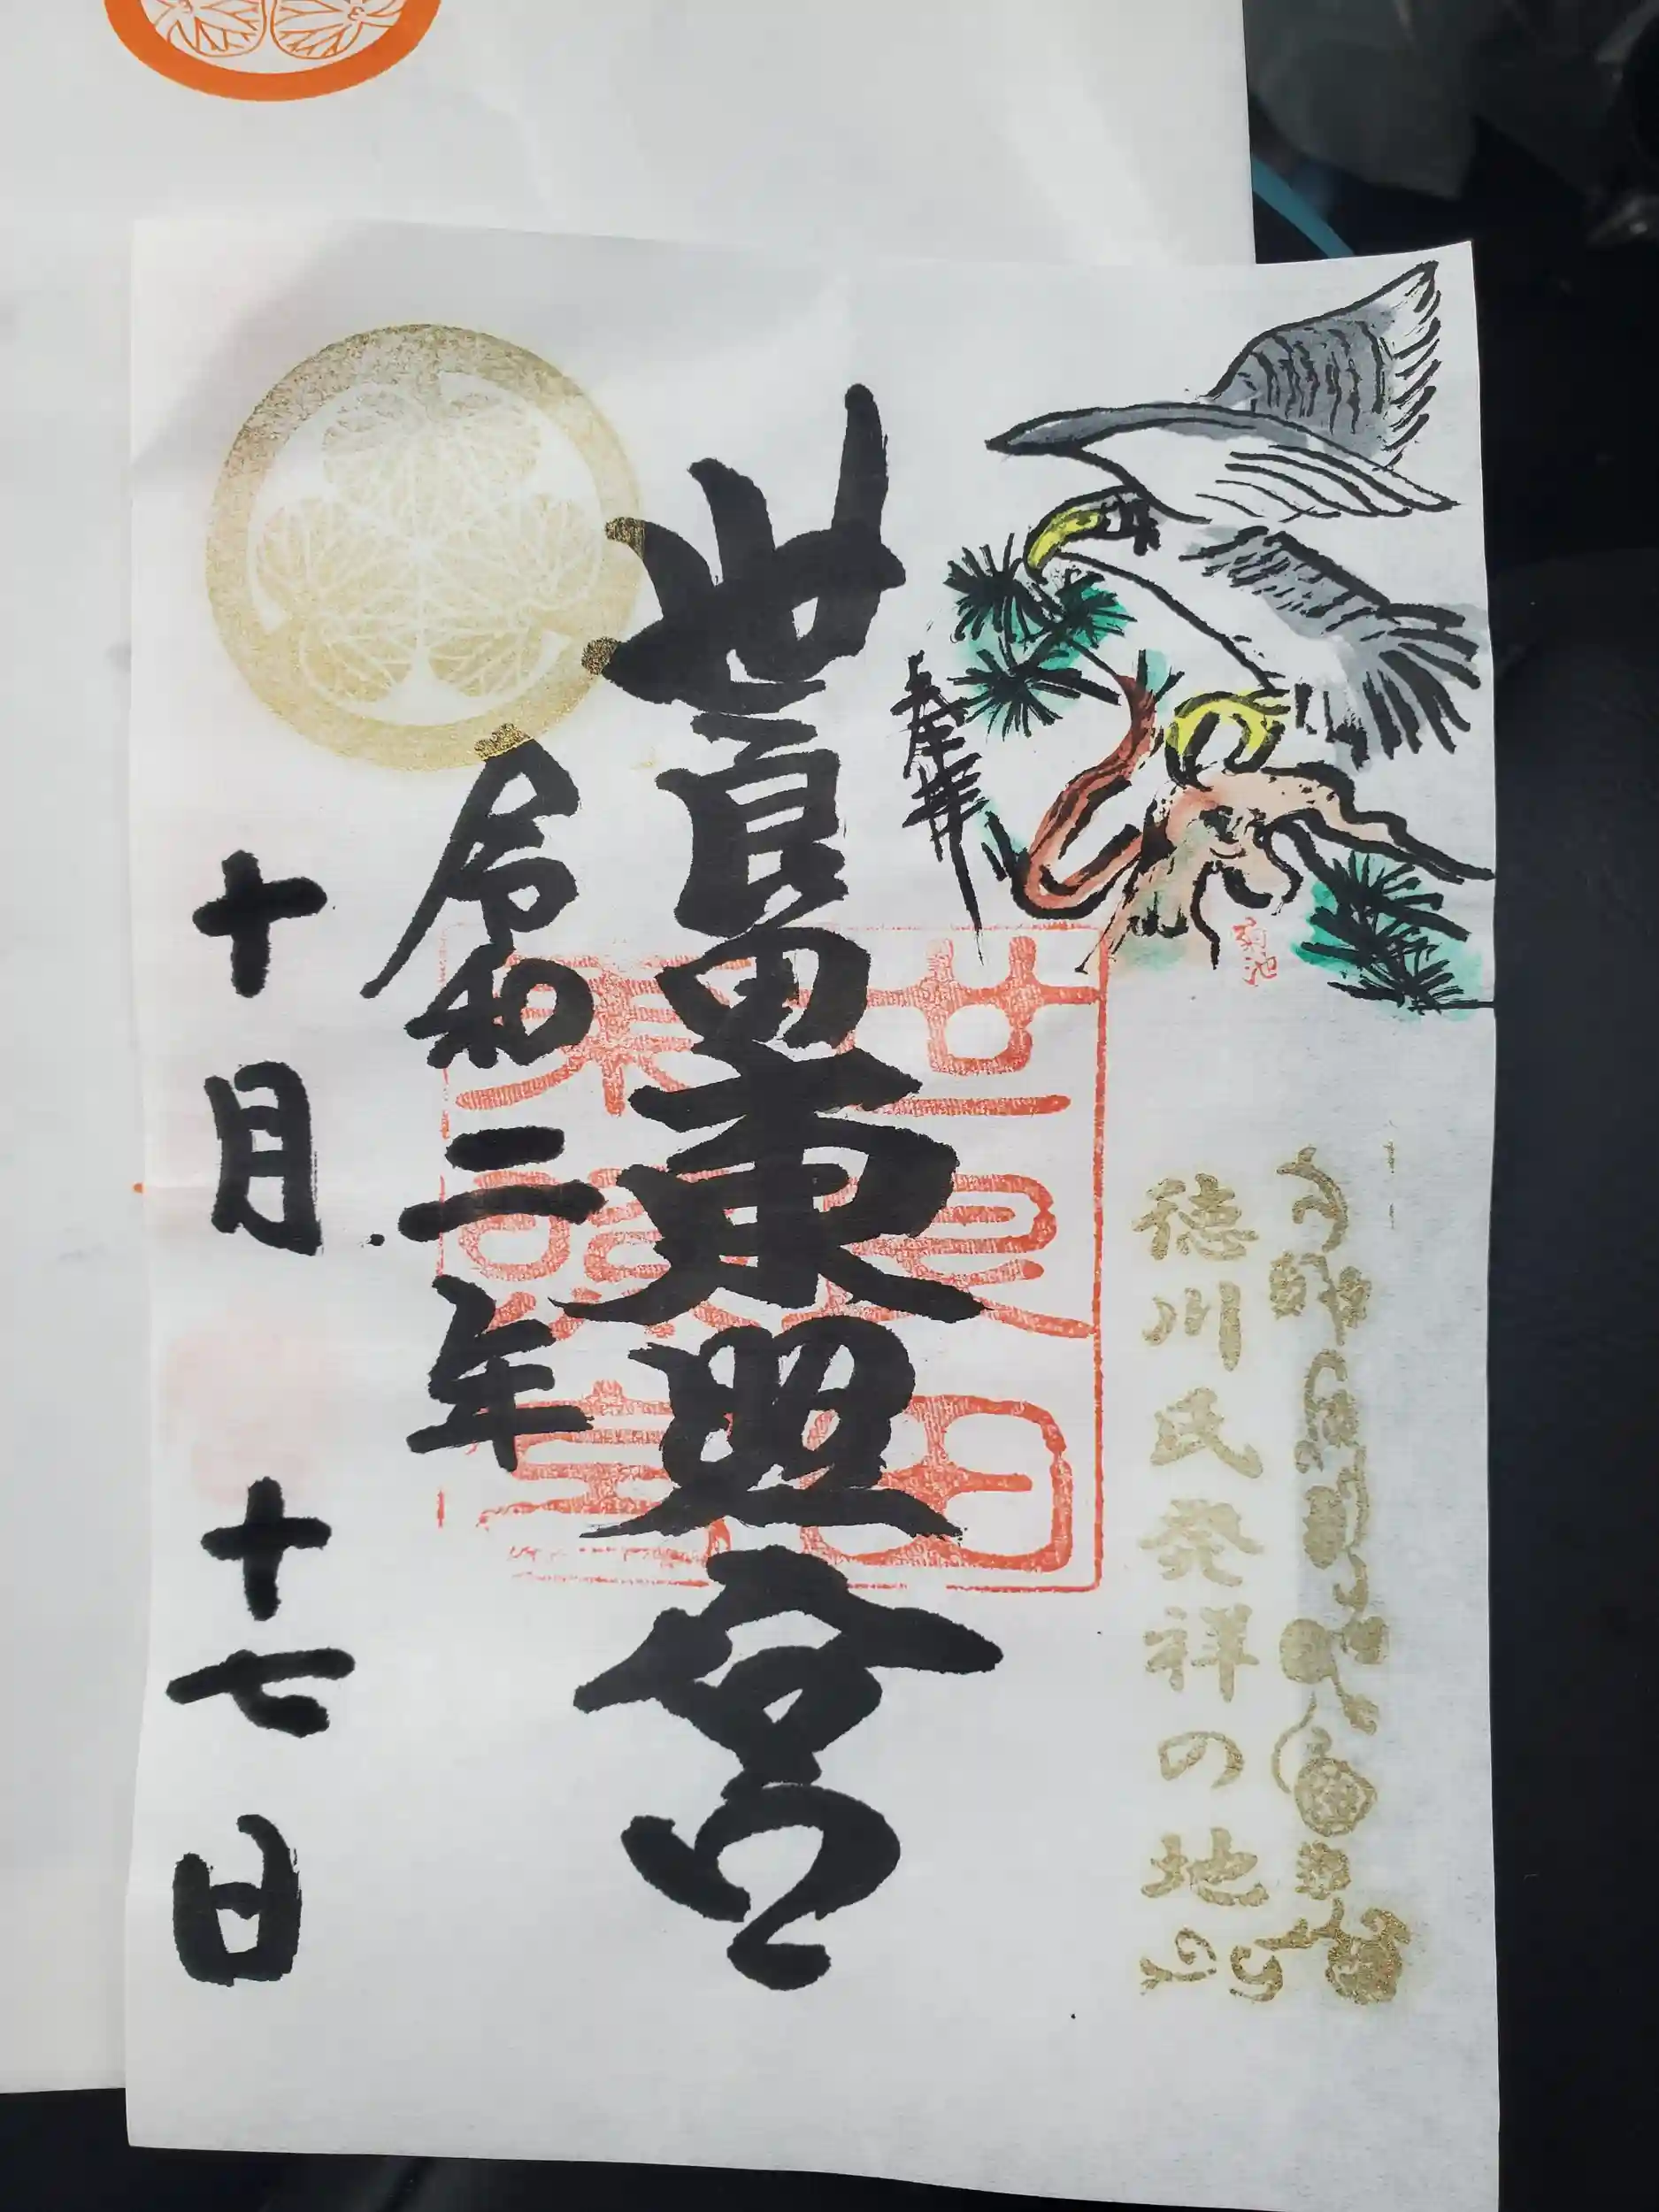 徳川氏発祥の地
奉拝
世良田東照宮
令和二年
十月十七日
菊池